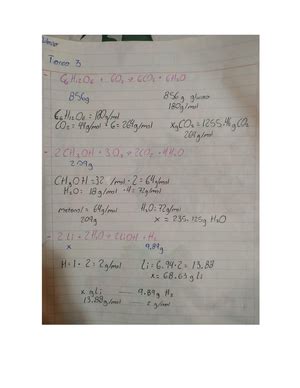 Tarea 3
C6H12O6 + 6O2 → 6CO2 + 6H2O
856g
856g glucosa
180g/mol
C6H12O6 = 180g/mol
CO2 = 44g/mol · 6 = 264g/mol
x g CO2 = 1255.46 g CO2
264g/mol
2CH3OH + 3O2 → 2CO2 + 4H2O
209g
CH3OH = 32 /mol · 2 = 64g/mol
H2O = 18g/mol · 4 = 72g/mol
metanol = 64g/mol H2O = 72g/mol
209g x = 235.125g H2O
2Li + 2H2O → 2LiOH + H2
x 9.89g
H = 1 · 2 = 2g/mol Li = 6.94 · 2 = 13.88
x = 68.63 g Li
x g Li 9.89g H2
13.88g/mol 2 g/mol